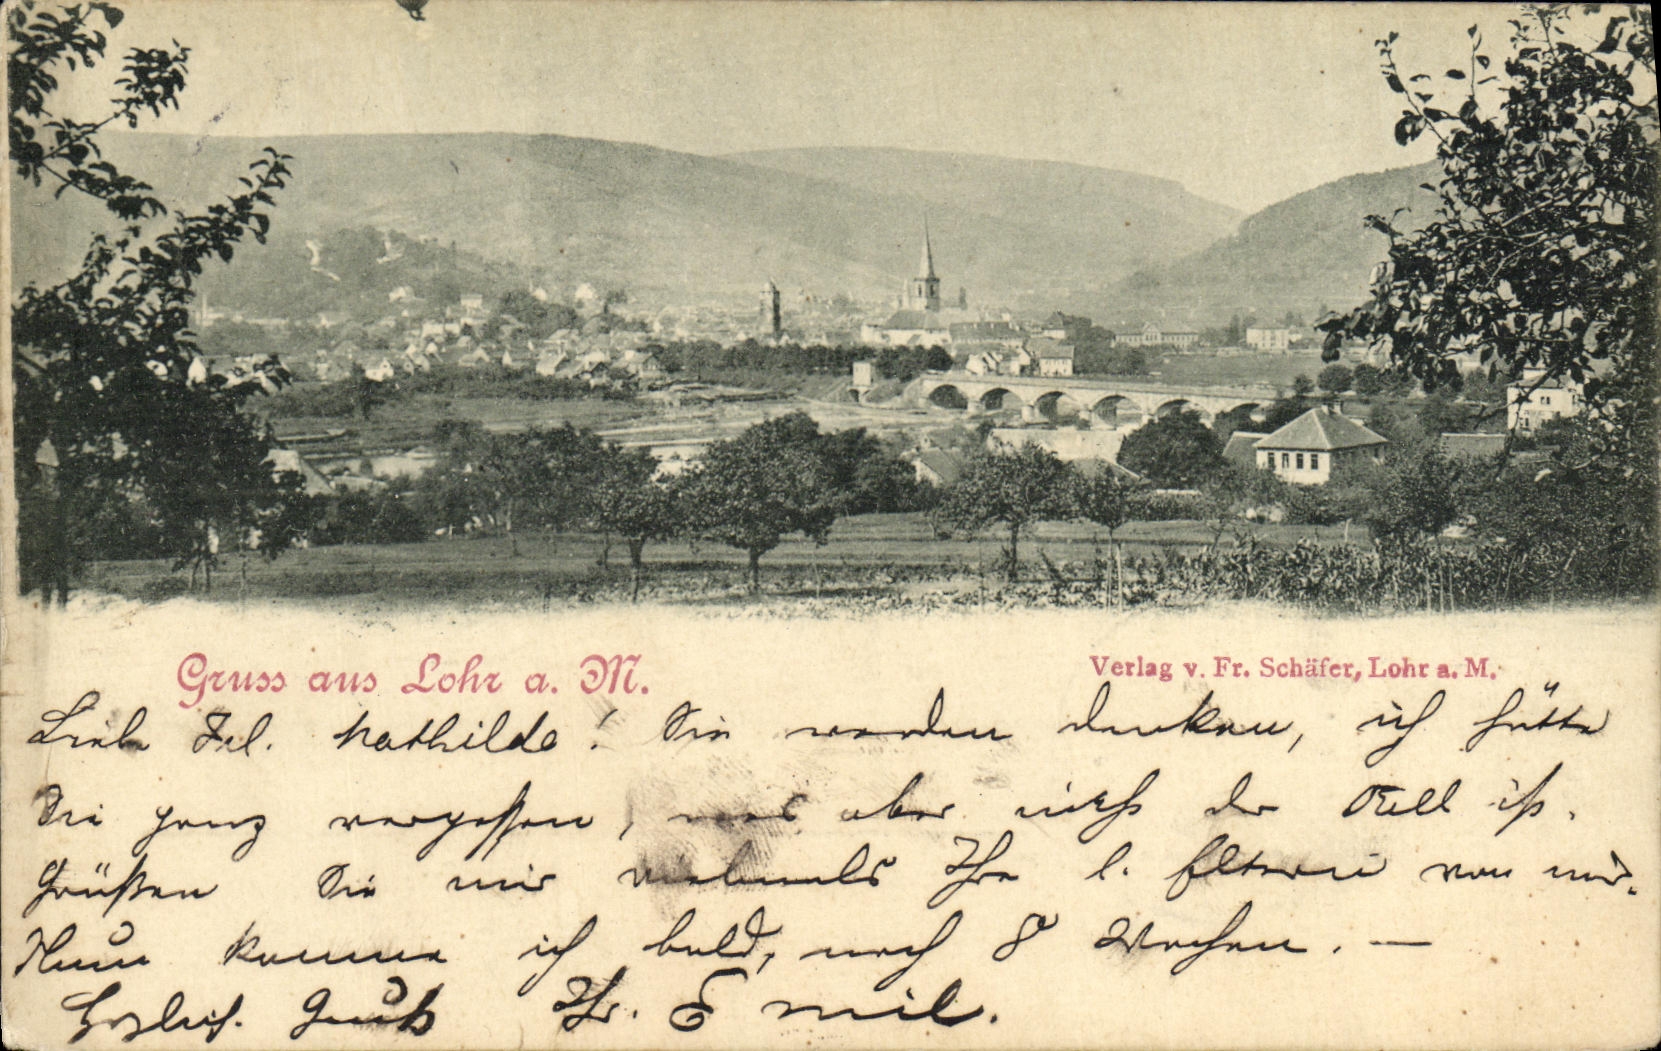 Gruss aus Lohr a. M.
Verlag v. Fr. Schäfer, Lohr a. M.
Liebe Frl. Mathilde! Sie werden denken, ich hätte
Sie ganz vergessen, was aber nicht der Fall ist.
Grüßen Sie mir vielmals Ihre l. Eltern von mir.
Nun komme ich bald, noch 8 Wochen. —
Herzlich. Gruß Ihr. Emil.